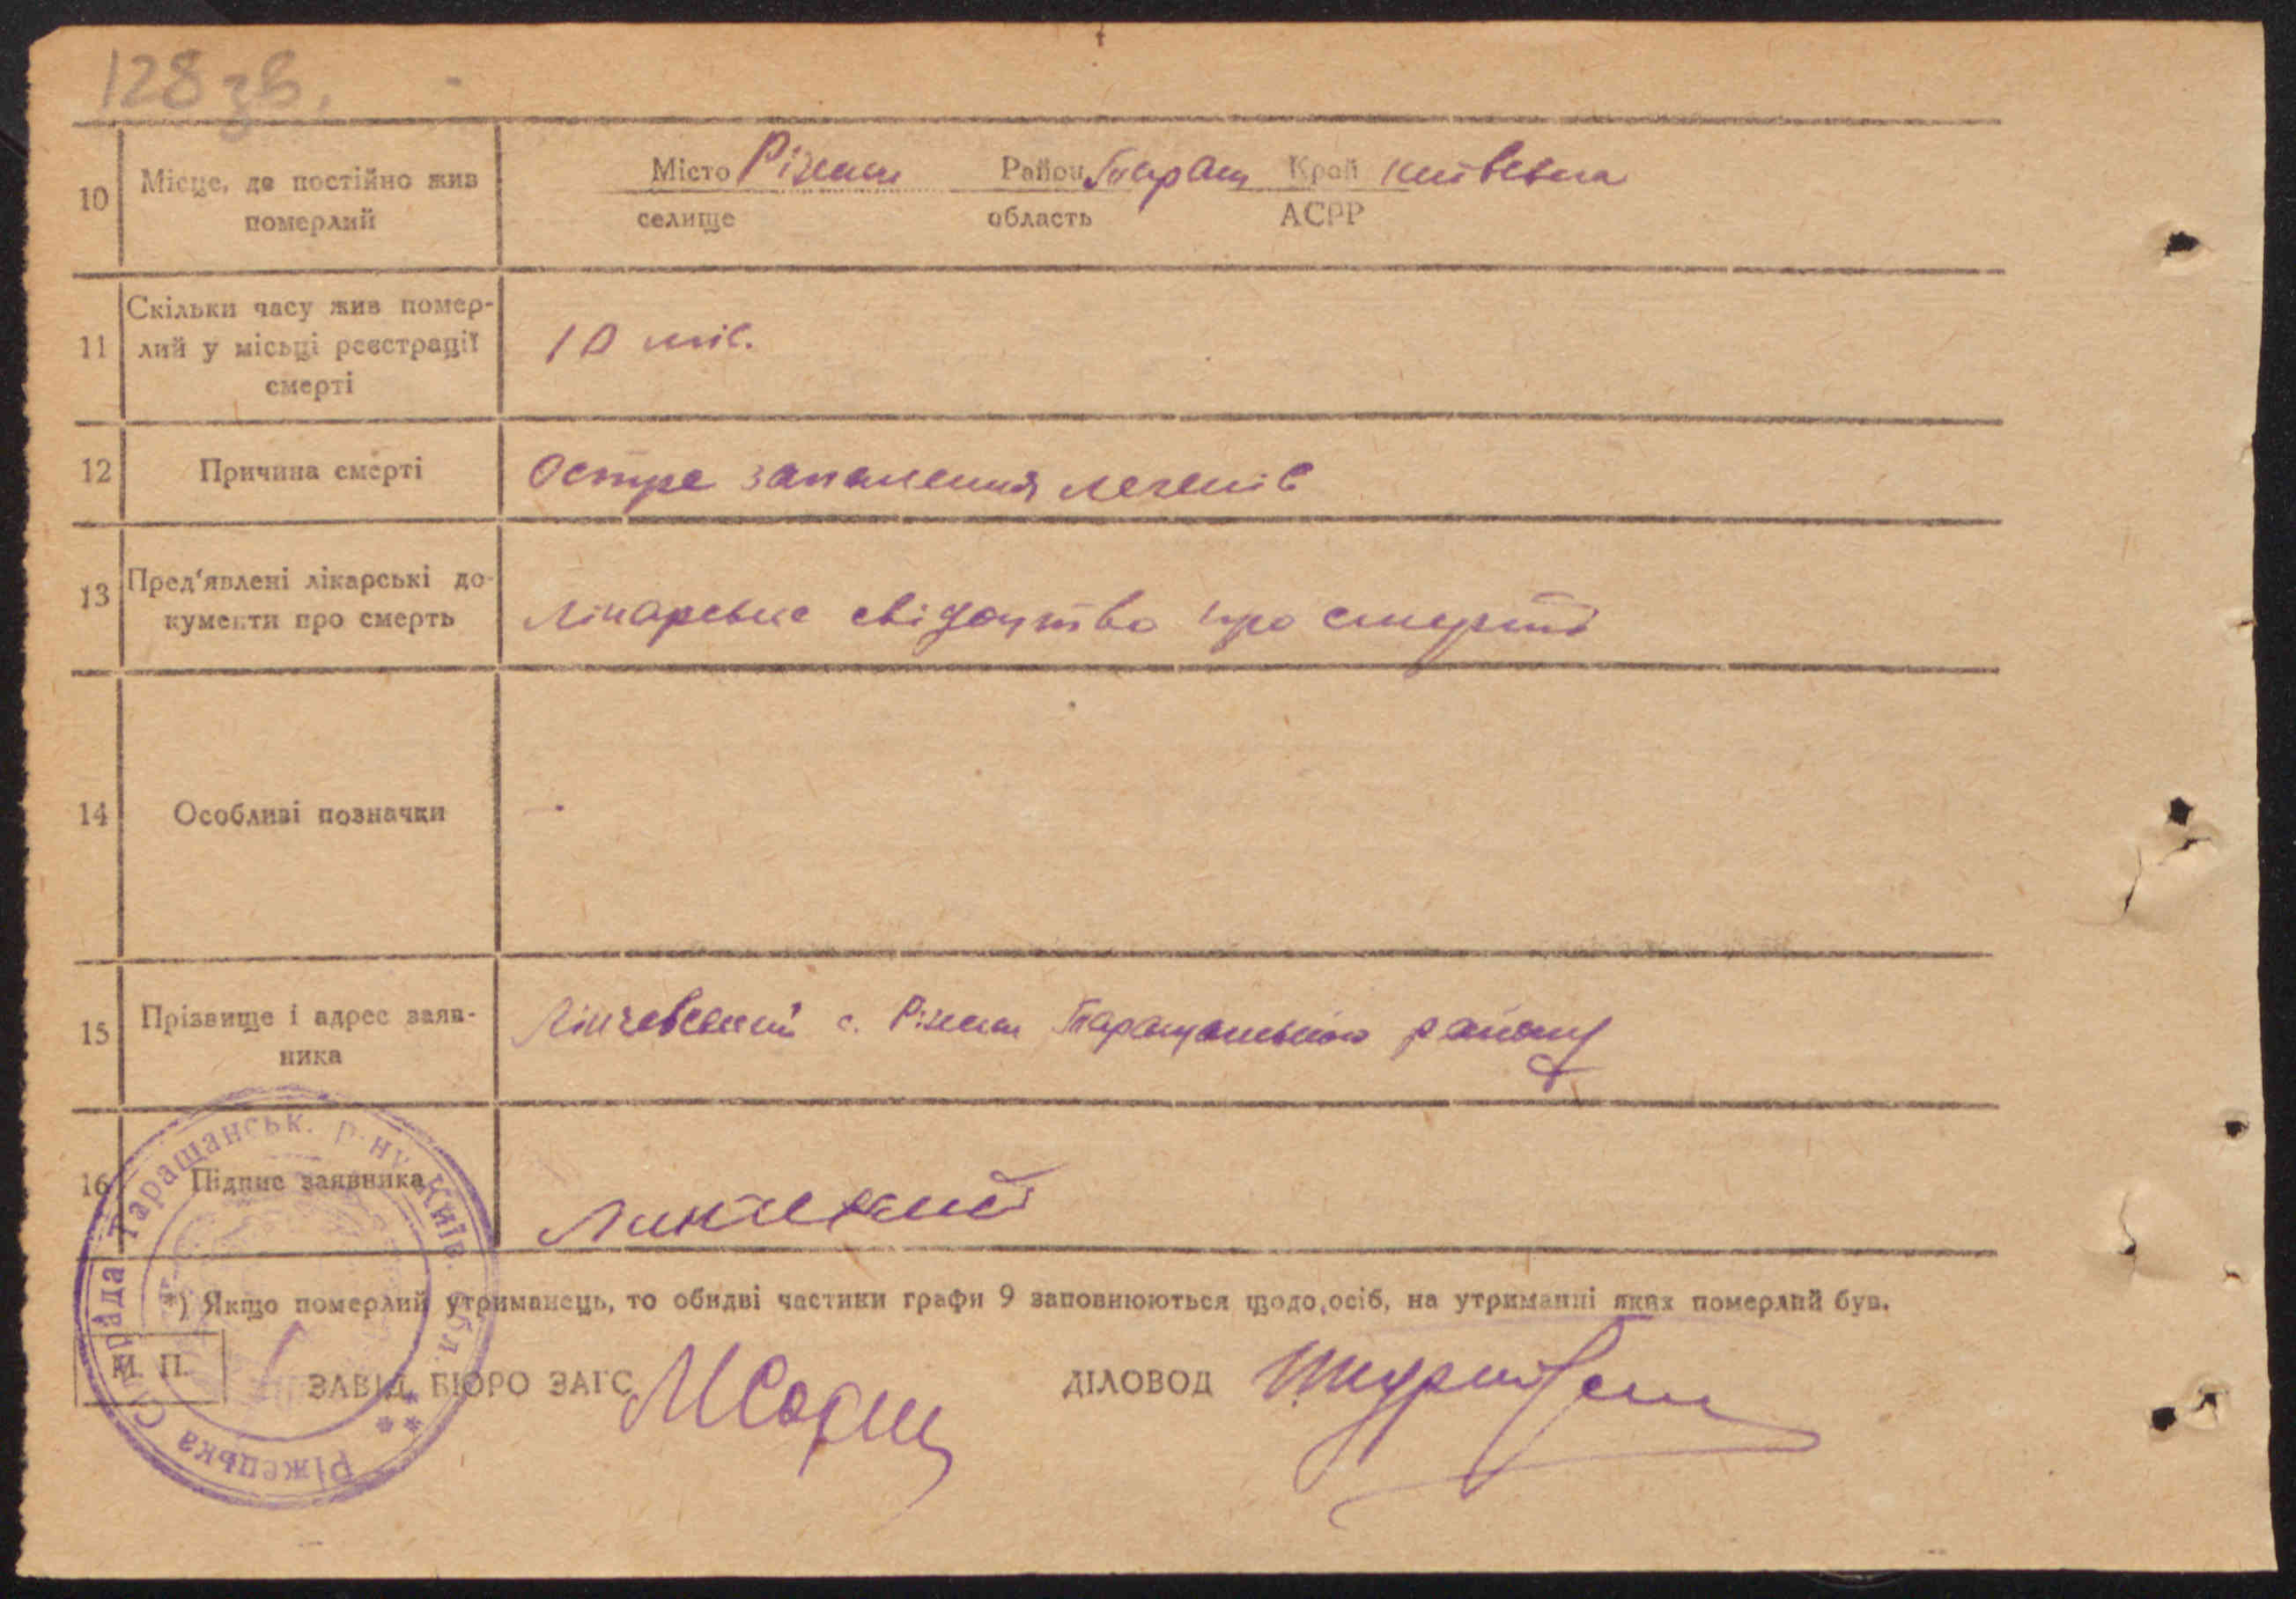 128 зв.
10 Місце, де постійно жив померлий
Місто Ріжки Район Таращ Край Київська
селище область АСРР
11 Скільки часу жив помер-
лий у місьці реєстрації
смерті
10 міс.
12 Причина смерті Остре запалення легенів
13 Пред'явлені лікарські до-
кументи про смерть
Лікарське свідоцтво про смерть
14 Особливі позначки
15 Прізвище і адрес заяв-
ника
с. Ріжки Таращанського району
16 Підпис заявника
*) Якщо померлий утриманець, то обидві частини графи 9 заповнюються щодо осіб, на утриманні яких померлий був.
М. П.
ЗАВІД. БЮРО ЗАГС ДІЛОВОД
Ріжецька Сільрада Таращанськ. р-ну Київ. обл.